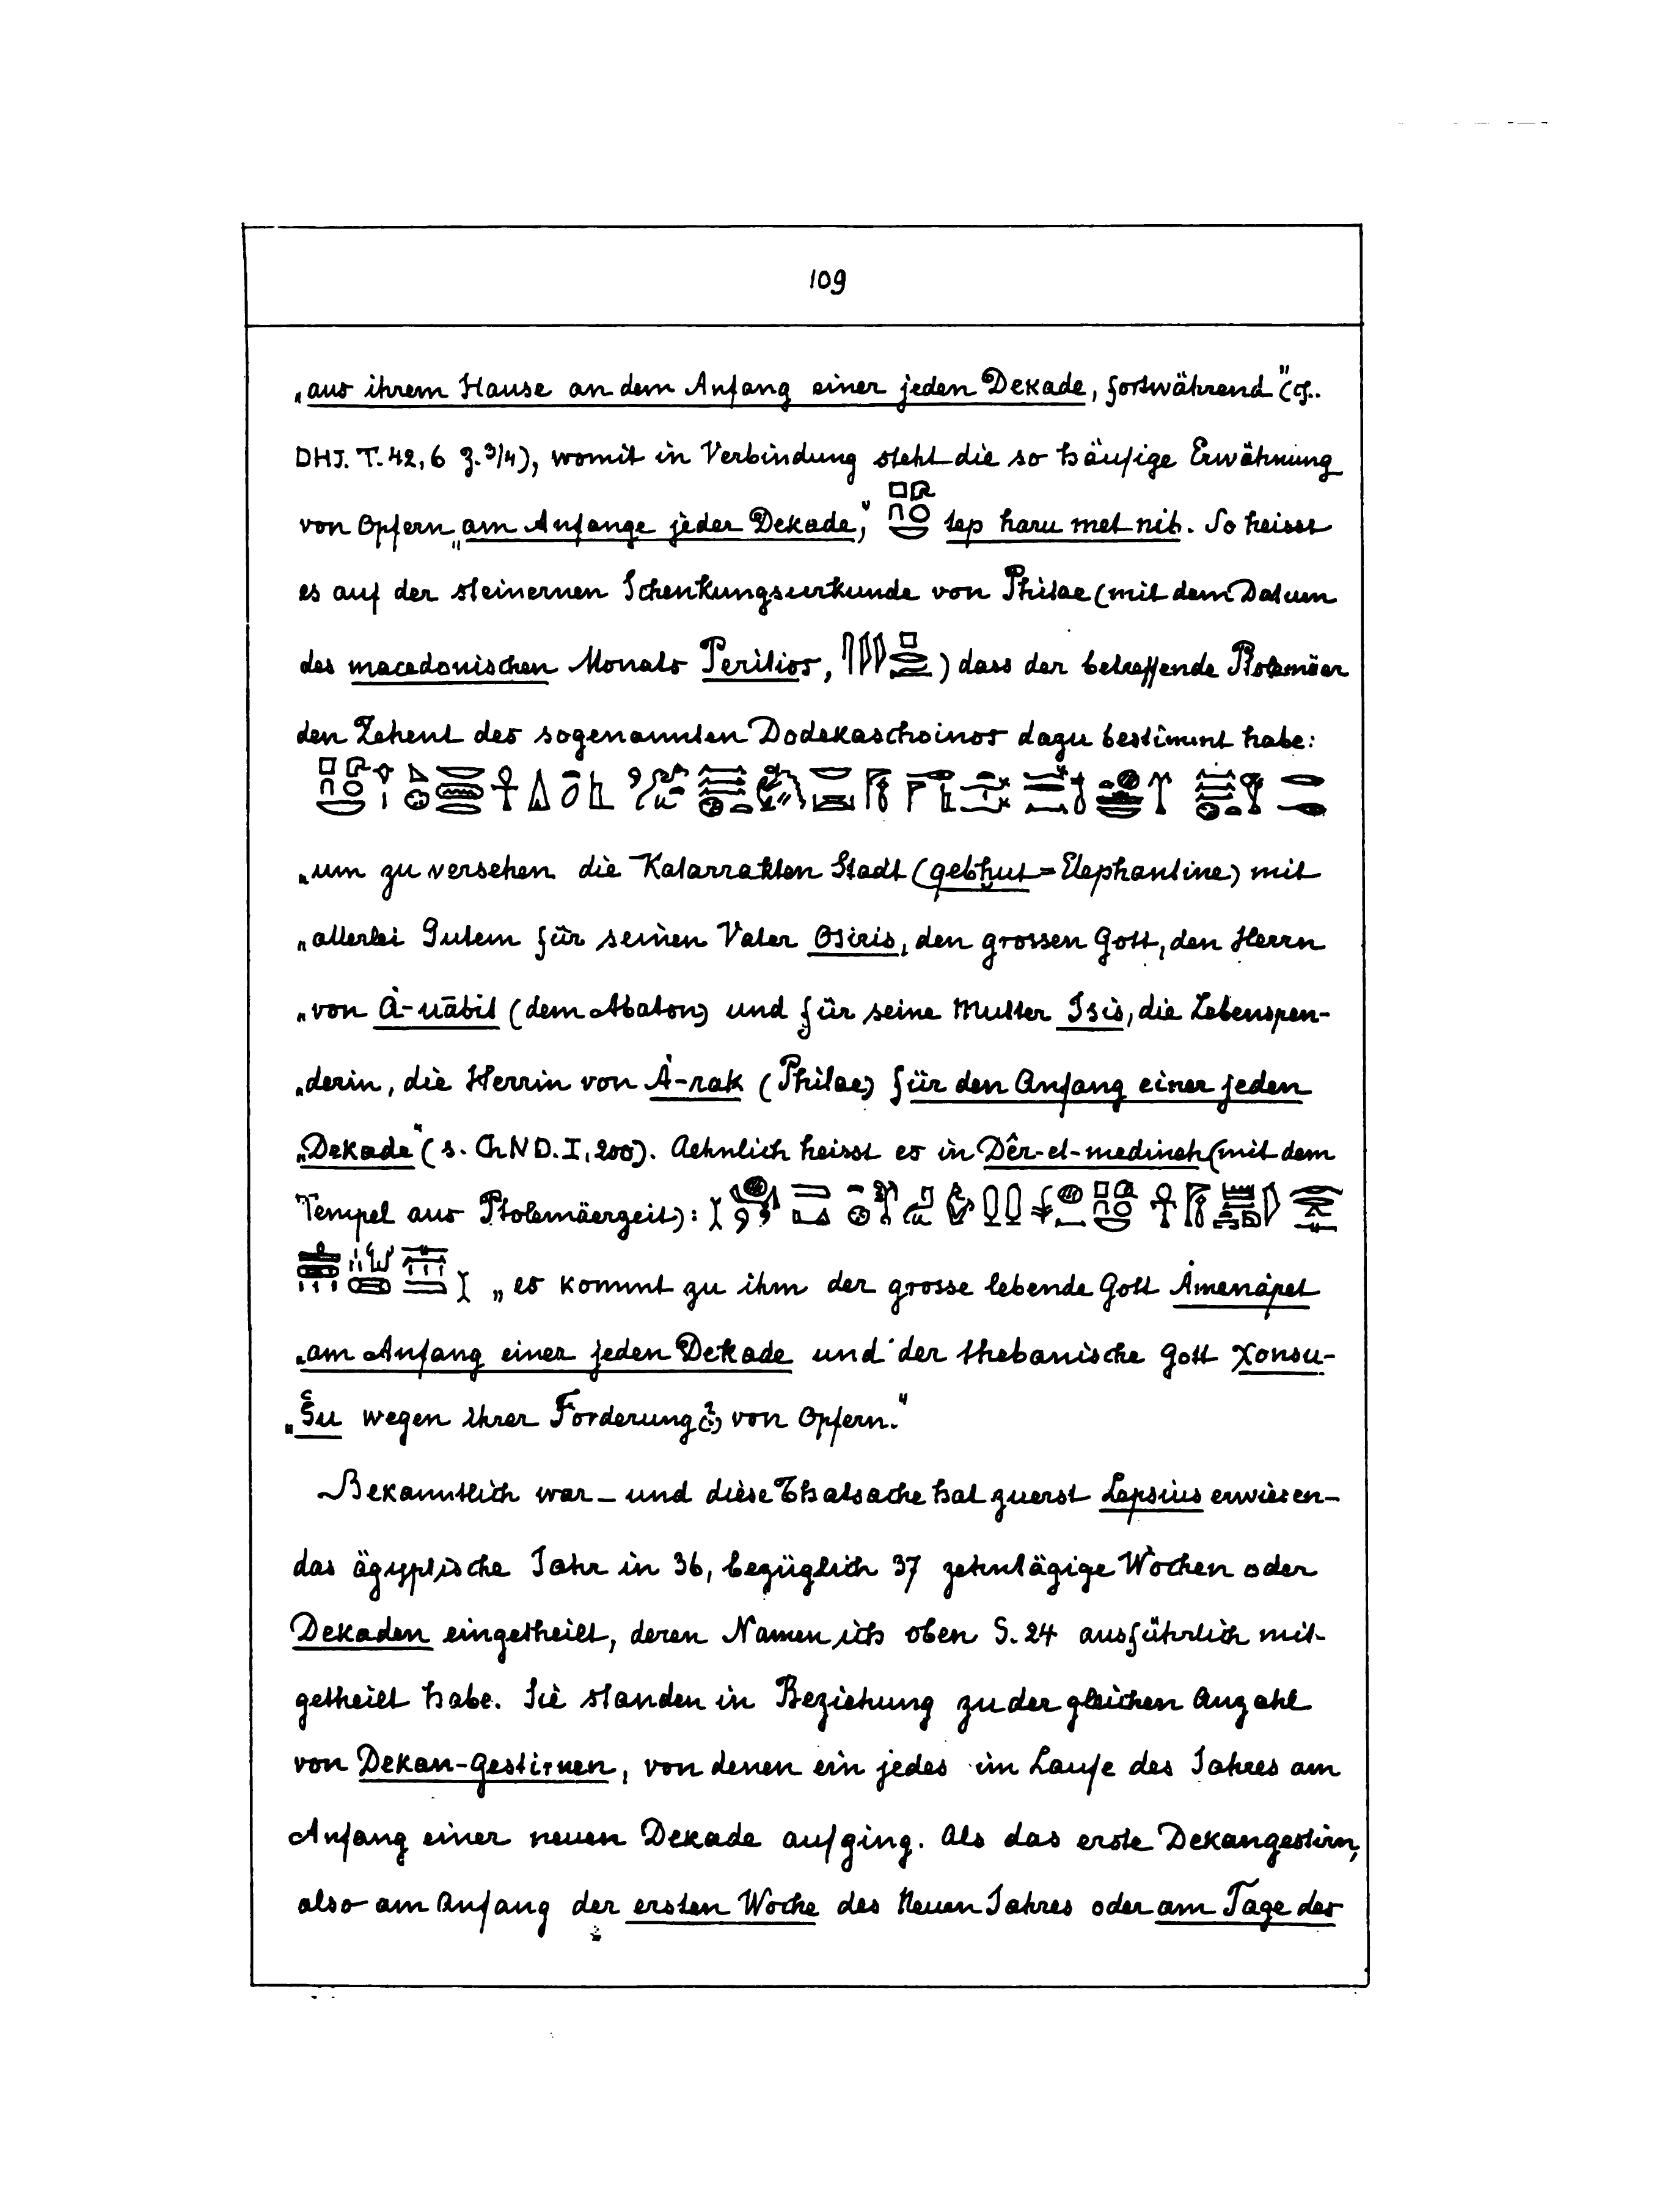 109
„aus ihrem Hause an dem Anfang einer jeden Dekade, fortwährend" (cf.
DHJ. T. 42, 6 Z. 3/4), womit in Verbindung steht die so häufige Erwähnung
von Opfern „am Anfange jeder Dekade," tep haru met nib. So heisst
es auf der steinernen Schenkungsurkunde von Philae (mit dem Datum
des macedonischen Monats Peritios, ) dass der betreffende Ptolemäer
den Zehent des sogenannten Dodekaschoinos dazu bestimmt habe:
„um zu versehen die Katarrakten Stadt (qebḥut = Elephantine) mit
„allerlei Gutem für seinen Vater Osiris, den grossen Gott, den Herrn
„von Ȧ-uābit (dem Abaton) und für seine Mutter Isis, die Lebenspen-
„derin, die Herrin von Ȧ-rak (Philae) für den Anfang einer jeden
„Dekade" (s. ChND. I, 200). Aehnlich heisst es in Dêr-el-medineh (mit dem
Tempel aus Ptolemäerzeit):
„es kommt zu ihm der grosse lebende Gott Ȧmenȧpet
„am Anfang einer jeden Dekade und der thebanische Gott Xonsu-
„Šu wegen ihrer Forderung (?) von Opfern."
Bekanntlich war – und diese Thatsache hat zuerst Lepsius erwiesen –
das ägyptische Jahr in 36, bezüglich 37 zehntägige Wochen oder
Dekaden eingetheilt, deren Namen ich oben S. 24 ausführlich mit-
getheilt habe. Sie standen in Beziehung zu der gleichen Anzahl
von Dekan-Gestirnen, von denen ein jedes im Laufe des Jahres am
Anfang einer neuen Dekade aufging. Als das erste Dekangestirn,
also am Anfang der ersten Woche des Neuen Jahres oder am Tage des